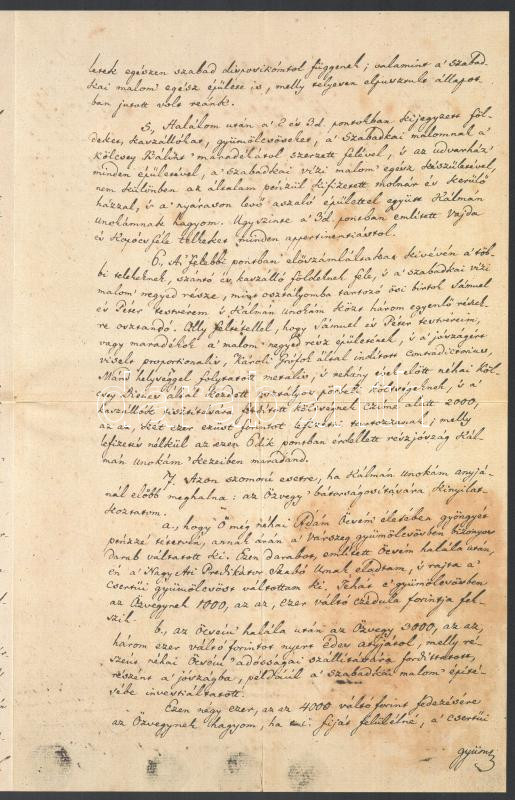 letek egészen szabad dispositiómtol függenek; valamint a' szabad-
kai malom' egész épülete is, melly telyesen elpusztult állapot-
ban jutott vole reánk.
5, Halálom után a' 2 és 3d. pontokban kijegyzett föl-
deket, kaszállókat, gyümölcsösöket, a' Szabadkai malomnak a'
Kölcsey maradékátol szerzett felével, is az udvarház
minden épületeivel, a' szabadkai vizi malom' egész készületeivel,
nem különben az általam pénzül kifizetett molnár és kerülő
házzal, is a' nyárason levő aszaló épülettel együtt Kálmán
Unokámnak hagyom. Ugyszinte a' 3d. pontban említett Vajda
és féle telkeket minden appertinentiástol.
6. A' felebbi pontban előszámláltakat kivévén a' töb-
bi teleknek, szántó és kaszálló földeknek fele, is a' szabadkai vizi
malom' negyed része, mint osztályomba tartozó ősi birtok Sámuel
és Péter testvereim is Kálmán Unokám közt három egyenlő részek-
re osztandó. Olly feltétellel, hogy Sámuel és Péter testvéreim,
vagy maradékok a' malom' negyed rész épületének, is a' jószágért
viselt proportionalis, Károli Grófok által inditott Contradictorius,
helységgel folytatott metalis, is néhány évek előtt néhai Köl-
csey által kezdett osztályos pörbeli költségeknek, is a'
kaszállók tisztítására fordított költségnek czime alatt 2000,
az az, két ezer ezüst forintot lefizetni tartozzanak; melly
lefizetés nélkül az ezen 6dik pontban érdellett részjószág Kál-
mán Unokám' kezeiben maradand.
7. Azon szomorú esetre, ha Kálmán Unokám anyjá-
nál előbb meghalna: az Özvegy' bátorságosítására kinyilat-
koztatom.
a., hogy Ő még néhai Ádám Öcsém életében gyöngyét
pénzzé tétetvén, annak árán a' Várszeg gyümölcsösben bizonyos
darab váltatott ki. Ezen darabot, említett Öcsém halála után,
én a' Nagy Ari Predikátor Szabó Urnak eladtam, is rajta a'
Csertüi gyümölcsöst váltottam ki. Tehát e' gyümölcsösben
az Özvegynek 1000, az az, ezer váltó czédula forintja fek-
szik.
b., az Öcsém' halála után az Özvegy 3000, az az,
három ezer váltó forintot nyert édes atyjától, melly ré-
szint néhai Öcsém' adósságai szállítására fordíttatott,
részint a' jószágba, példáúl a' szabadkai malom épité-
sébe investiáltatott.
Ezen négy ezer, az az 4000 váltó forint fedezésére
az Özvegynek hagyom, ha fiját felülélné, a' Csertüi
gyüm